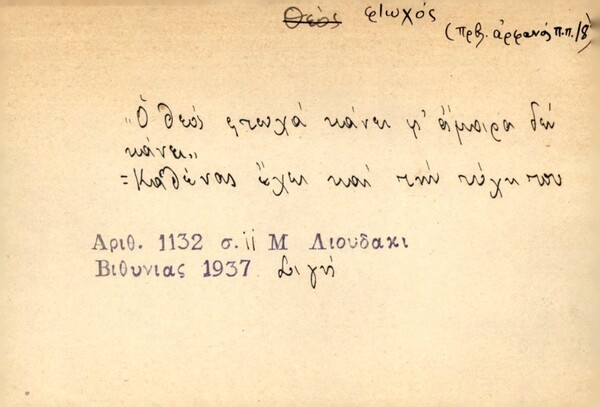 Θεός φτωχός
(πρβ. ὀρφανός π.π. / 8)
„Ὁ θεός φτωχά κάνει μ' ἄμοιρα δέν
κάνει„
= Καθένας ἔχει καί τήν τύχη του
Αριθ. 1132 σ. 11 Μ Λιουδακι
Βιθυνιας 1937 Σιγή